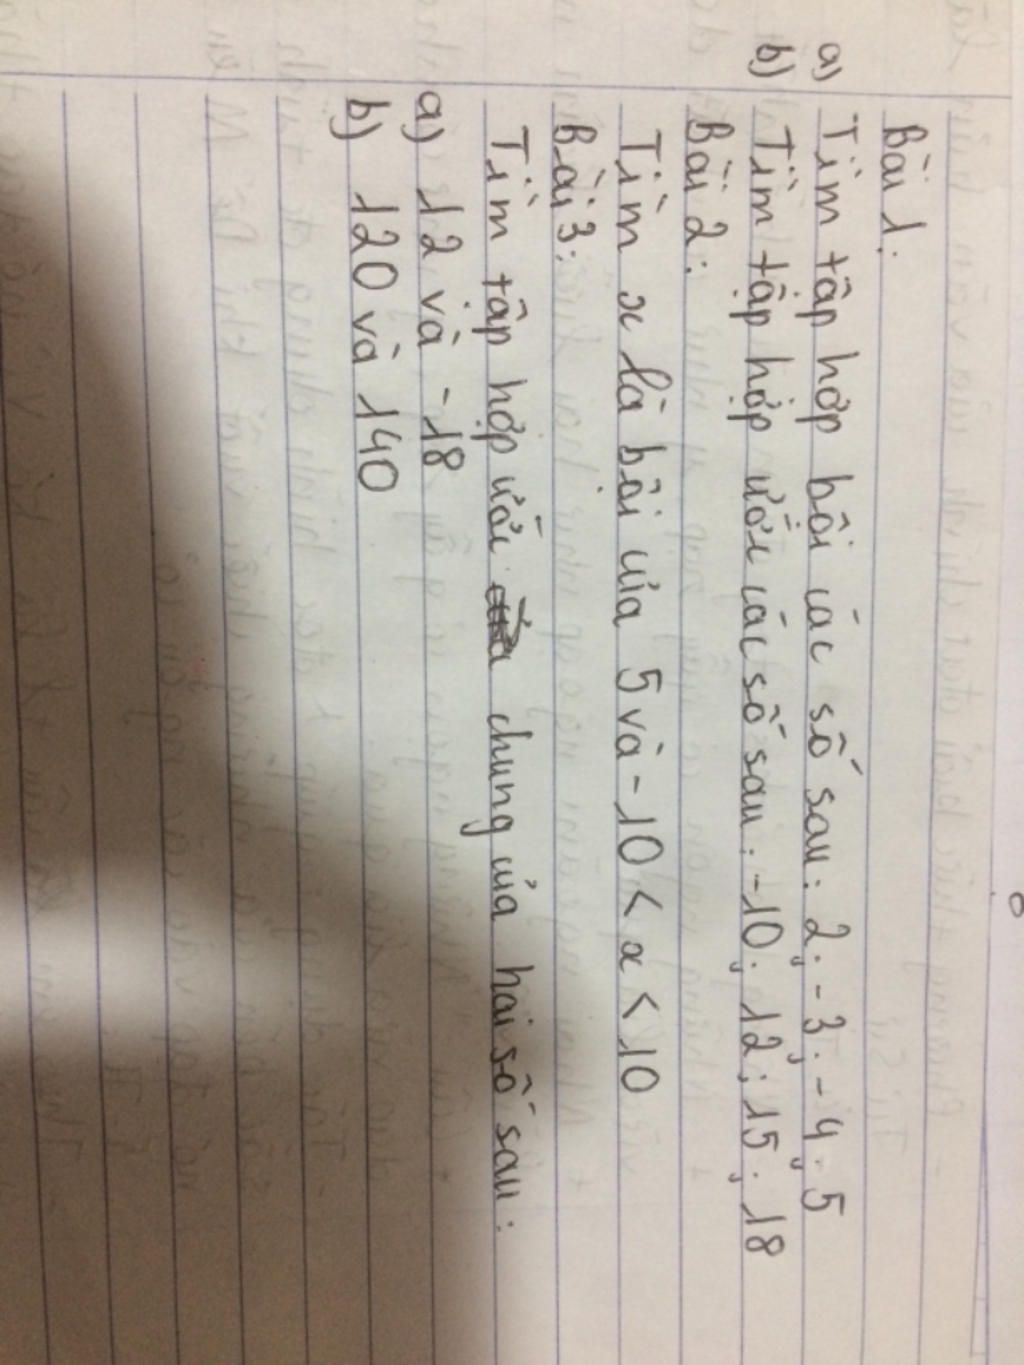 Bài 1:
a) Tìm tập hợp bội các số sau: 2; -3; -4; 5
b) Tìm tập hợp ước các số sau: -10; 12; 15; 18
Bài 2:
Tìm x là bội của 5 và -10 < x < 10
Bài 3:
Tìm tập hợp ước chung của hai số sau:
a) 12 và -18
b) 120 và 140